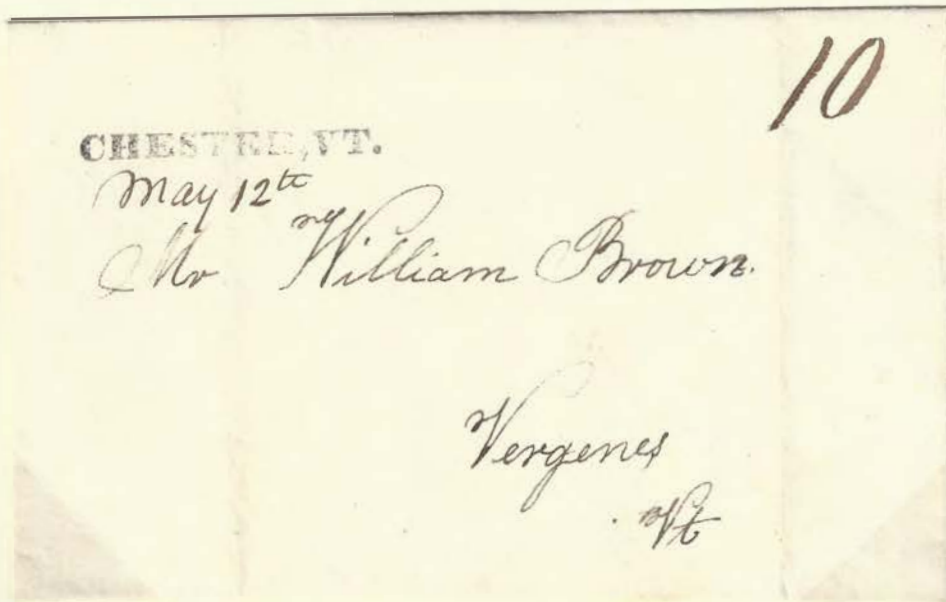 10
CHESTER, VT.
May 12th
Mr William Brown.
Vergenes
Vt